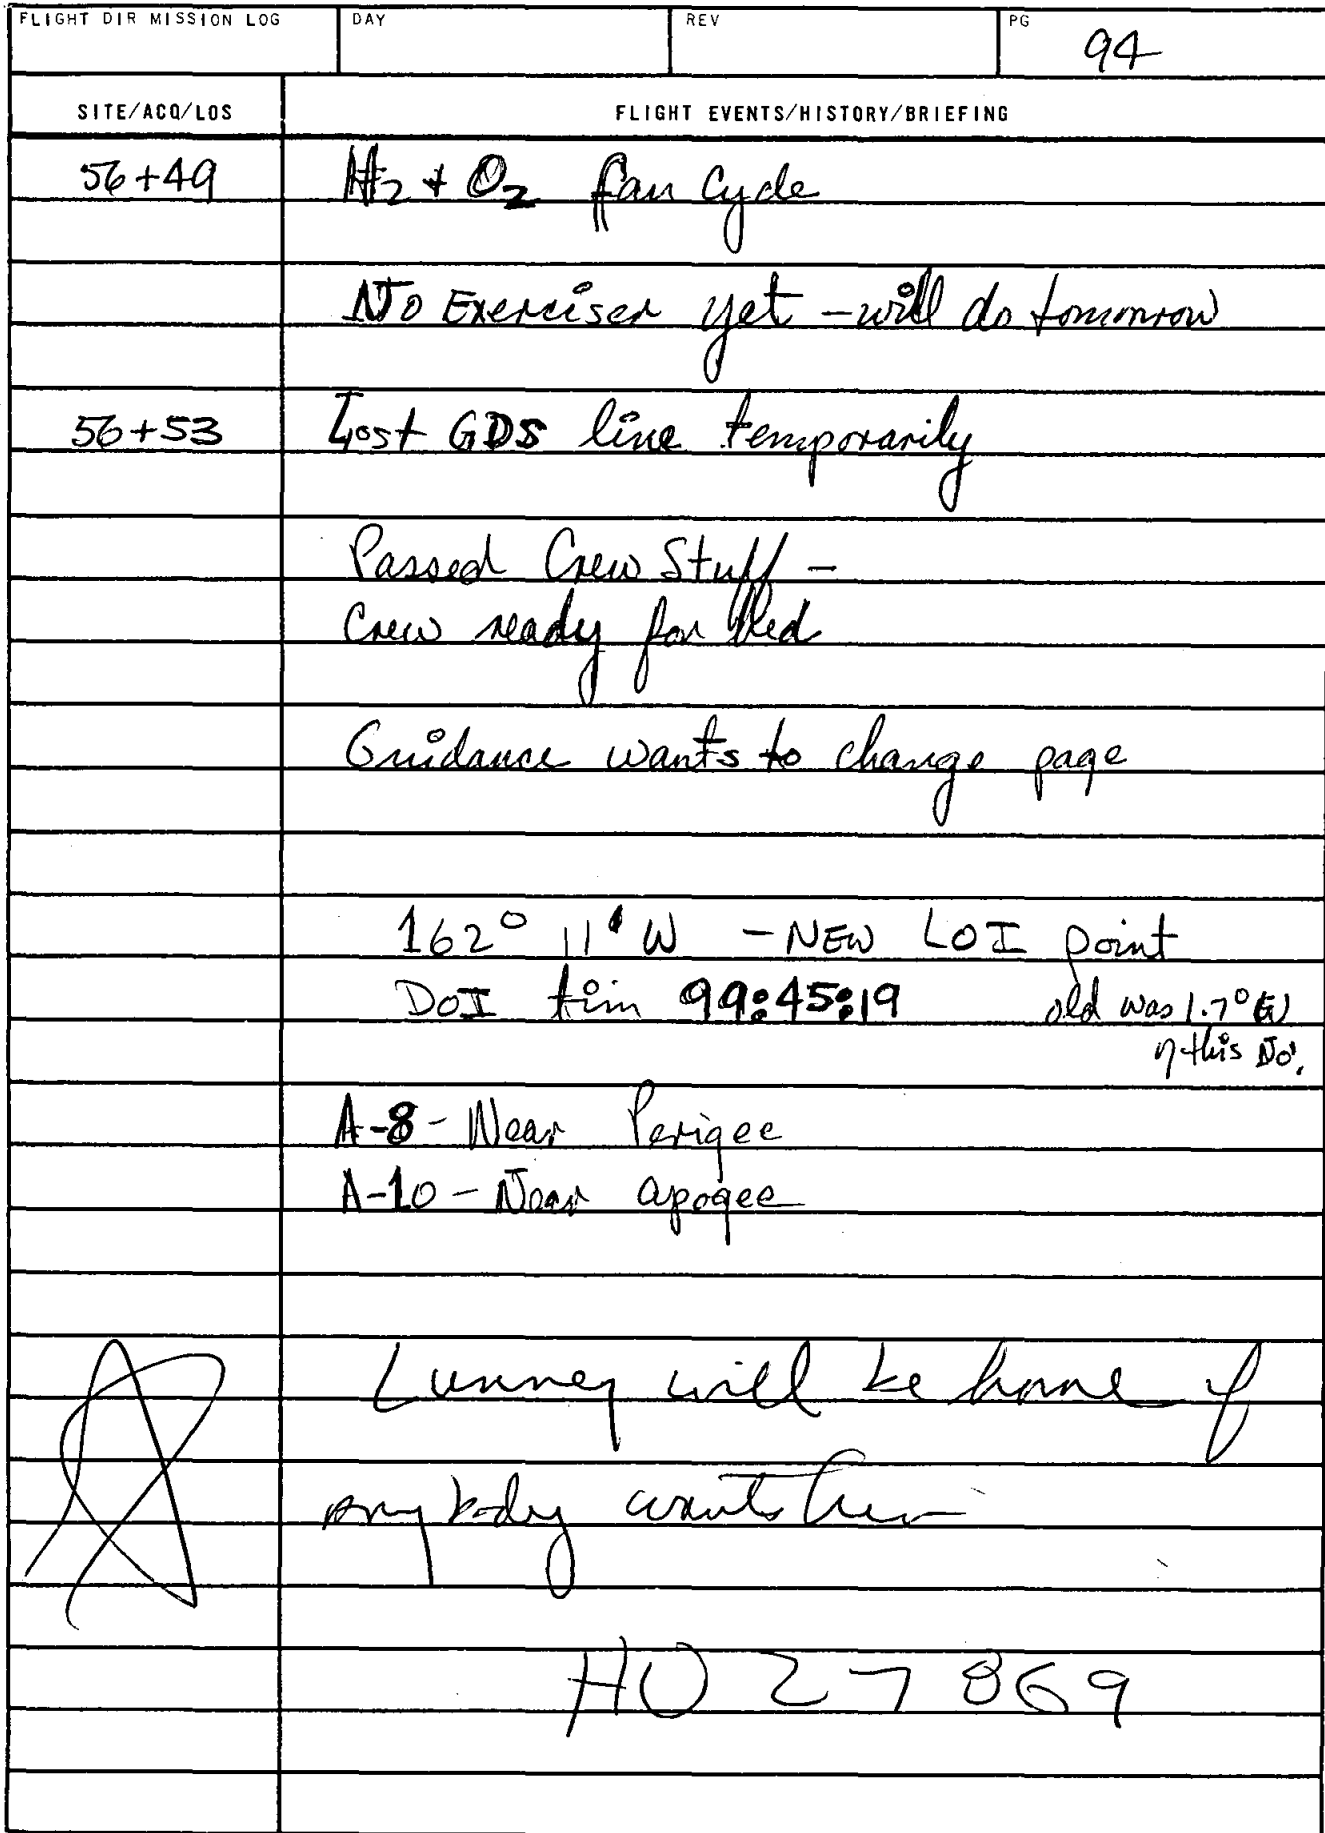 FLIGHT DIR MISSION LOG DAY REV PG 94
SITE/ACQ/LOS FLIGHT EVENTS/HISTORY/BRIEFING
56+49 H2 + O2 fan Cycle
No Exerciser yet - will do tomorrow
56+53 Lost GDS line temporarily
Passed Crew Stuff -
Crew ready for bed
Guidance wants to change page
162° 11' W - NEW LOI point
DOI tim 99:45:19 old was 1.7°
of this No.
A-8 - Near Perigee
A-10 - Near apogee
Lunney will be home if
anybody wants him
HU 2 7 869